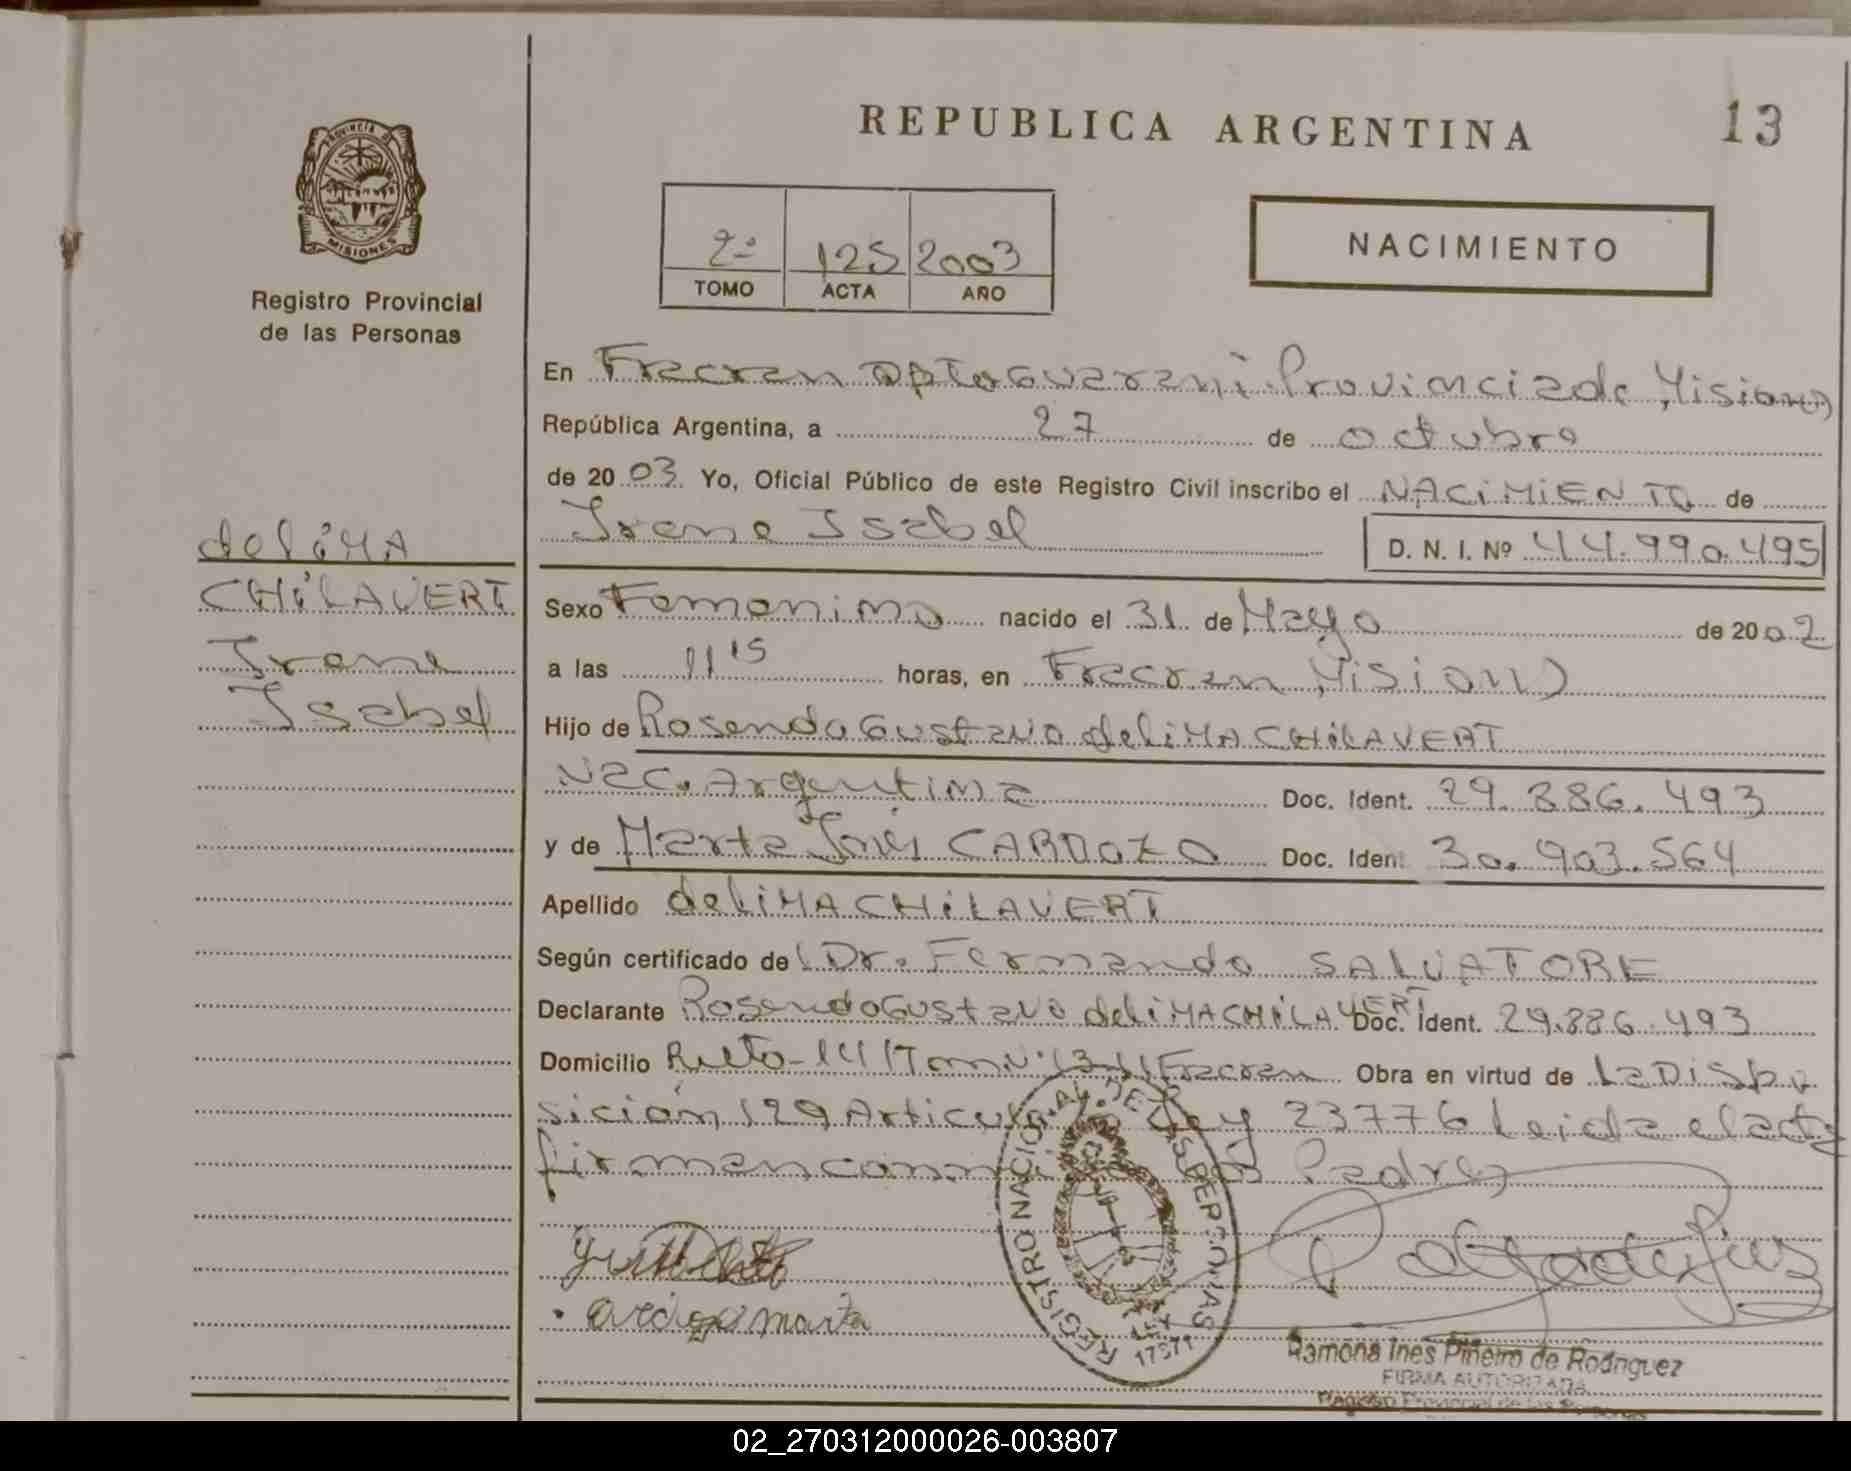 REPUBLICA ARGENTINA
13
PROVINCIA DE
MISIONES
Registro Provincial
de las Personas
2º 125 2003
TOMO ACTA AÑO
NACIMIENTO
En Fracran Dpto Guarani Provincia de Misiones
República Argentina, a 27 de octubre
de 2003 Yo, Oficial Público de este Registro Civil inscribo el NACIMIENTO de
Irene Isabel D. N. I. Nº 44.990.495
de LIMA
CHILAVERT
Irene
Isabel
Sexo Femenino nacido el 31 de Mayo de 2002
a las 11 15 horas, en Fracran Misiones
Hijo de Rosendo Gustavo de LIMA CHILAVERT
Nac. Argentina Doc. Ident. 29.886.493
y de Marta Inés CARDOZO Doc. Ident 30.903.564
Apellido de LIMA CHILAVERT
Según certificado del Dr. Fernando SALVATORE
Declarante Rosendo Gustavo de LIMA CHILAVERT Doc. Ident. 29.886.493
Domicilio Ruta 14 Fracran Obra en virtud de La Dispo
sición 129 Ley 23776 Leida el acta
firman conmigo los Padres
REGISTRO NACIONAL DE LAS PERSONAS
Cardozo marta
Ramona Ines Piñeiro de Rodriguez
FIRMA AUTORIZADA
Registro Provincial de las Personas
02_270312000026-003807